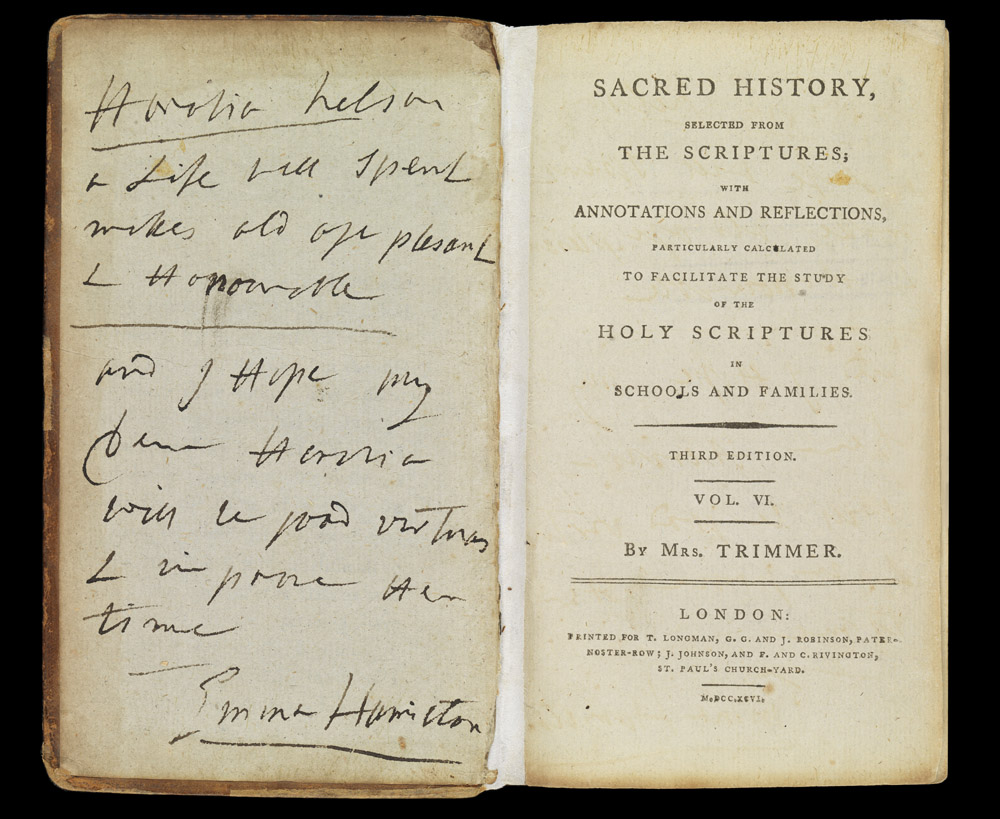 Horatia Nelson
a Life well Spent
makes old age plesant
& Honourable
and I Hope my
Dear Horatia
will be good virtuas
& improve Her
time
Emma Hamilton
SACRED HISTORY,
SELECTED FROM
THE SCRIPTURES;
WITH
ANNOTATIONS AND REFLECTIONS,
PARTICULARLY CALCULATED
TO FACILITATE THE STUDY
OF THE
HOLY SCRIPTURES
IN
SCHOOLS AND FAMILIES.
THIRD EDITION.
VOL. VI.
By Mrs. TRIMMER.
LONDON:
PRINTED FOR T. LONGMAN, G. G. AND J. ROBINSON, PATER-
NOSTER-ROW; J. JOHNSON, AND F. AND C. RIVINGTON,
ST. PAUL'S CHURCH-YARD.
M.DCC.XCVI.